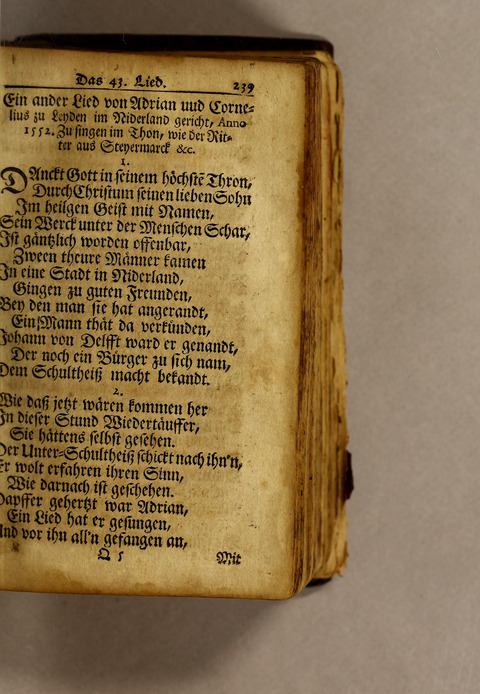 Das 43. Lied. 239
Ein ander Lied von Adrian uud Corne-
lius zu Leyden im Niderland gericht, Anno
1552. Zu singen im Thon, wie der Rit-
ter aus Steyermarck &c.
1.
DAnckt Gott in seinem höchstẽ Thron,
Durch Christum seinen lieben Sohn
Im heilgen Geist mit Namen,
Sein Werck unter der Menschen Schar,
Ist gäntzlich worden offenbar,
Zween theure Männer kamen
In eine Stadt in Niderland,
Gingen zu guten Freunden,
Bey den man sie hat angerandt,
Ein Mann thät da verkünden,
Johann von Delfft ward er genandt,
Der noch ein Bürger zu sich nam,
Dem Schultheiß macht bekandt.
2.
Wie daß jetzt wären kommen her
In dieser Stund Wiedertäuffer,
Sie hättens selbst gesehen.
Der Unter-Schultheiß schickt nach ihn'n,
Er wolt erfahren ihren Sinn,
Wie darnach ist geschehen.
Dapffer gehertzt war Adrian,
Ein Lied hat er gesungen,
Und vor ihn all'n gefangen an,
Q 5 Mit